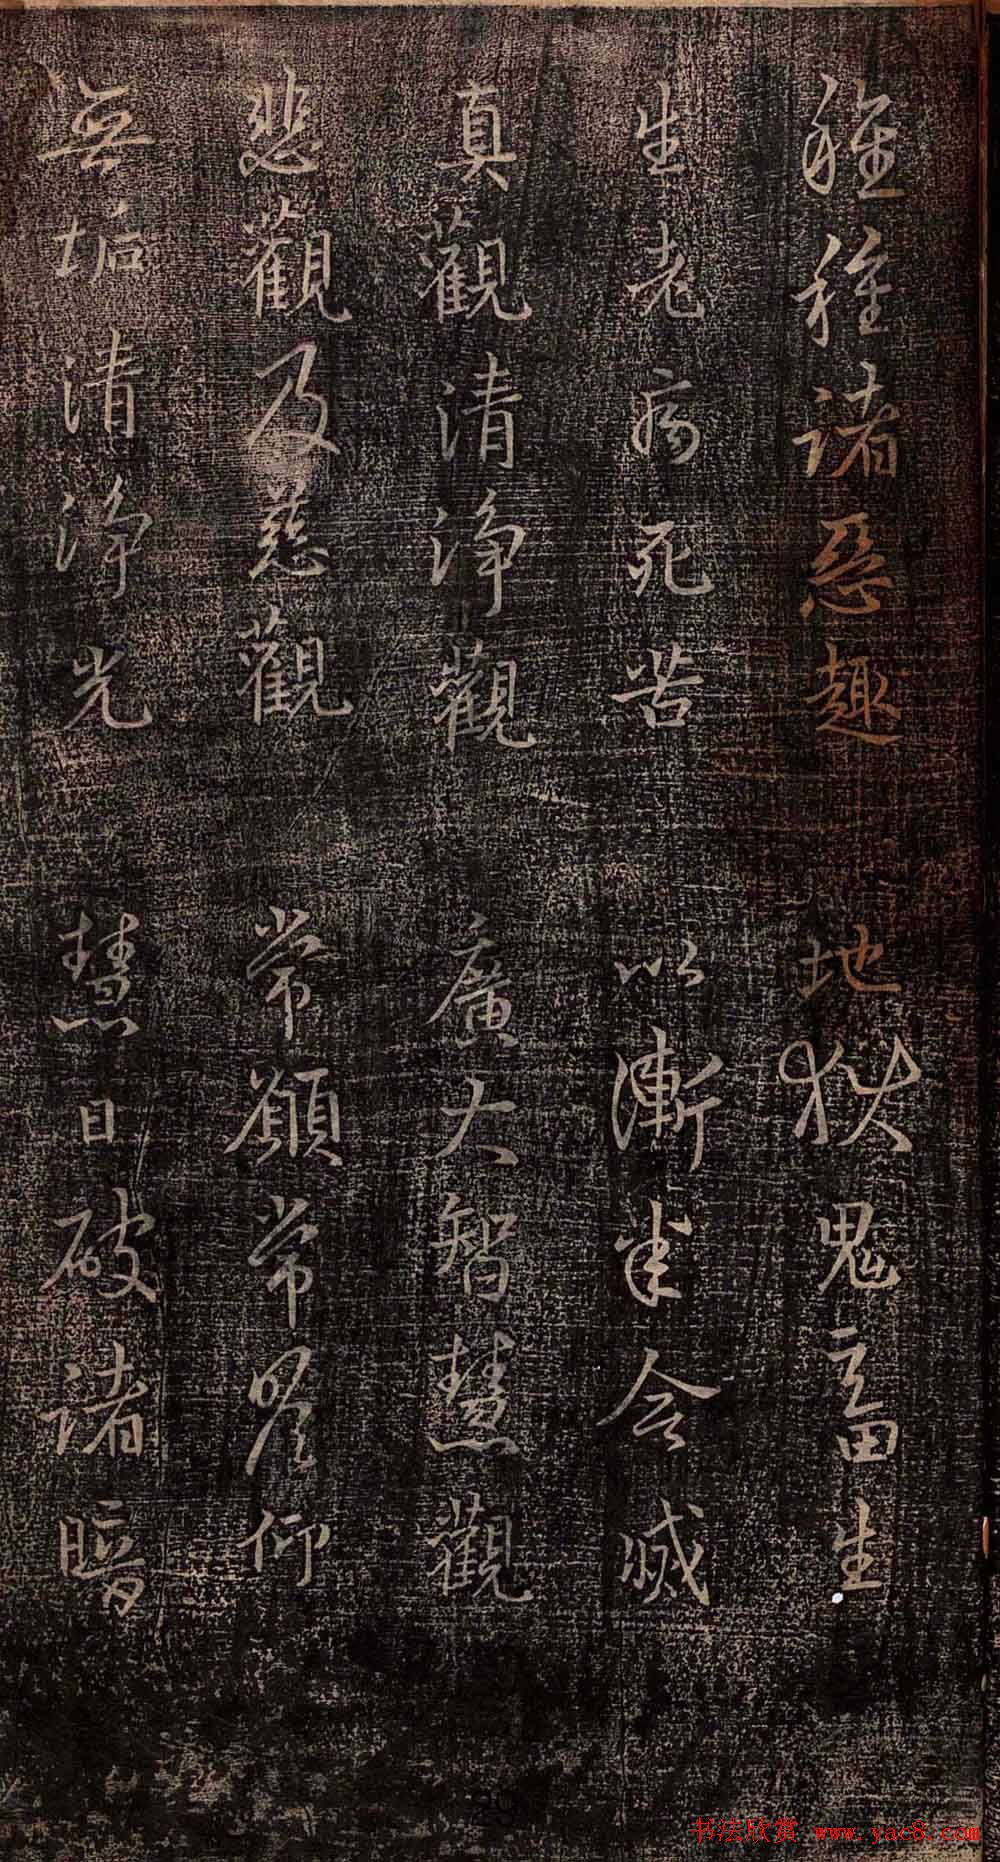 種種諸惡趣 地獄鬼畜生
生老病死苦 以漸悉令滅
真觀清淨觀 廣大智慧觀
悲觀及慈觀 常願常瞻仰
無垢清淨光 慧日破諸暗
书法欣赏 www.yac8.com